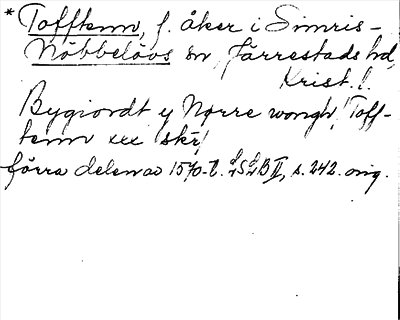 * Tofftenn, f. åker i Simris-
Nöbbelövs sn, Järrestads hd,
Krist. l.
Bygiordt y Nørre wongh! Toff-
tenn xxx skr/
förra delen av 1570-t. S B II, s. 242. orig.